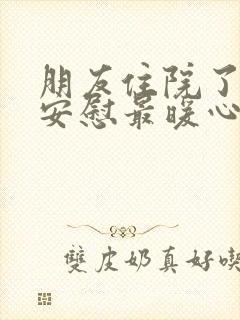 朋友住院了
安慰最暖心
雙皮奶真好喫